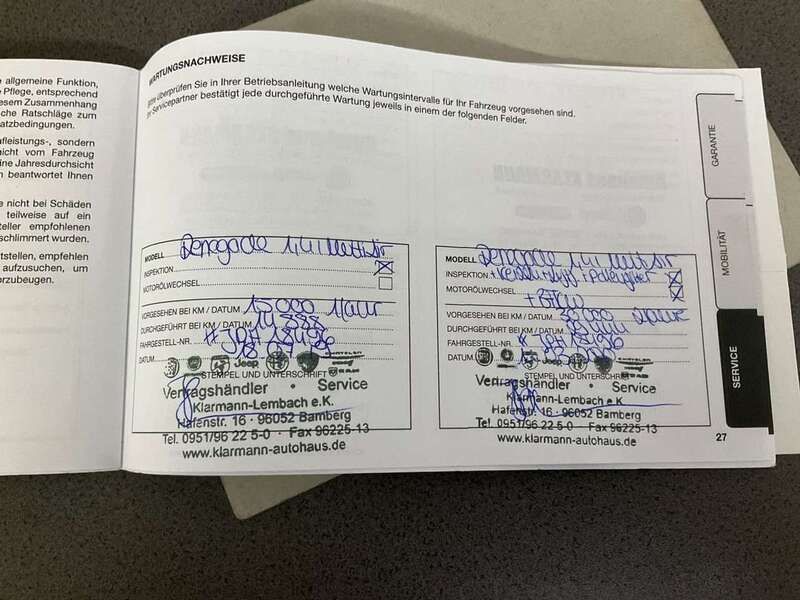 e allgemeine Funktion,
e Pflege, entsprechend
esem Zusammenhang
che Ratschläge zum
atzbedingungen.
afleistungs-, sondern
nicht vom Fahrzeug
ine Jahresdurchsicht
n beantwortet Ihnen
e nicht bei Schäden
teilweise auf ein
teller empfohlenen
schlimmert wurden.
tstellen, empfehlen
aufzusuchen, um
orzubeugen.
WARTUNGSNACHWEISE
überprüfen Sie in Ihrer Betriebsanleitung welche Wartungsintervalle für Ihr Fahrzeug vorgesehen sind.
Servicepartner bestätigt jede durchgeführte Wartung jeweils in einem der folgenden Felder.
MODELL Renegade 1,4l
INSPEKTION
MOTORÖLWECHSEL
VORGESEHEN BEI KM / DATUM 15000
DURCHGEFÜHRT BEI KM / DATUM 14888
FAHRGESTELL-NR.
DATUM
Jeep
STEMPEL UND UNTERSCHRIFT
Vertragshändler · Service
Klarmann-Lembach e.K.
Hafenstr. 16 · 96052 Bamberg
Tel. 0951/96 22 5-0 · Fax 96225-13
www.klarmann-autohaus.de
MODELL Renegade 1,4l
INSPEKTION
MOTORÖLWECHSEL
VORGESEHEN BEI KM / DATUM 30000
DURCHGEFÜHRT BEI KM / DATUM
FAHRGESTELL-NR.
DATUM
Jeep
STEMPEL UND UNTERSCHRIFT
Vertragshändler · Service
Klarmann-Lembach e.K.
Hafenstr. 16 · 96052 Bamberg
Tel. 0951/96 22 5-0 · Fax 96225-13
www.klarmann-autohaus.de
GARANTIE
MOBILITÄT
SERVICE
27